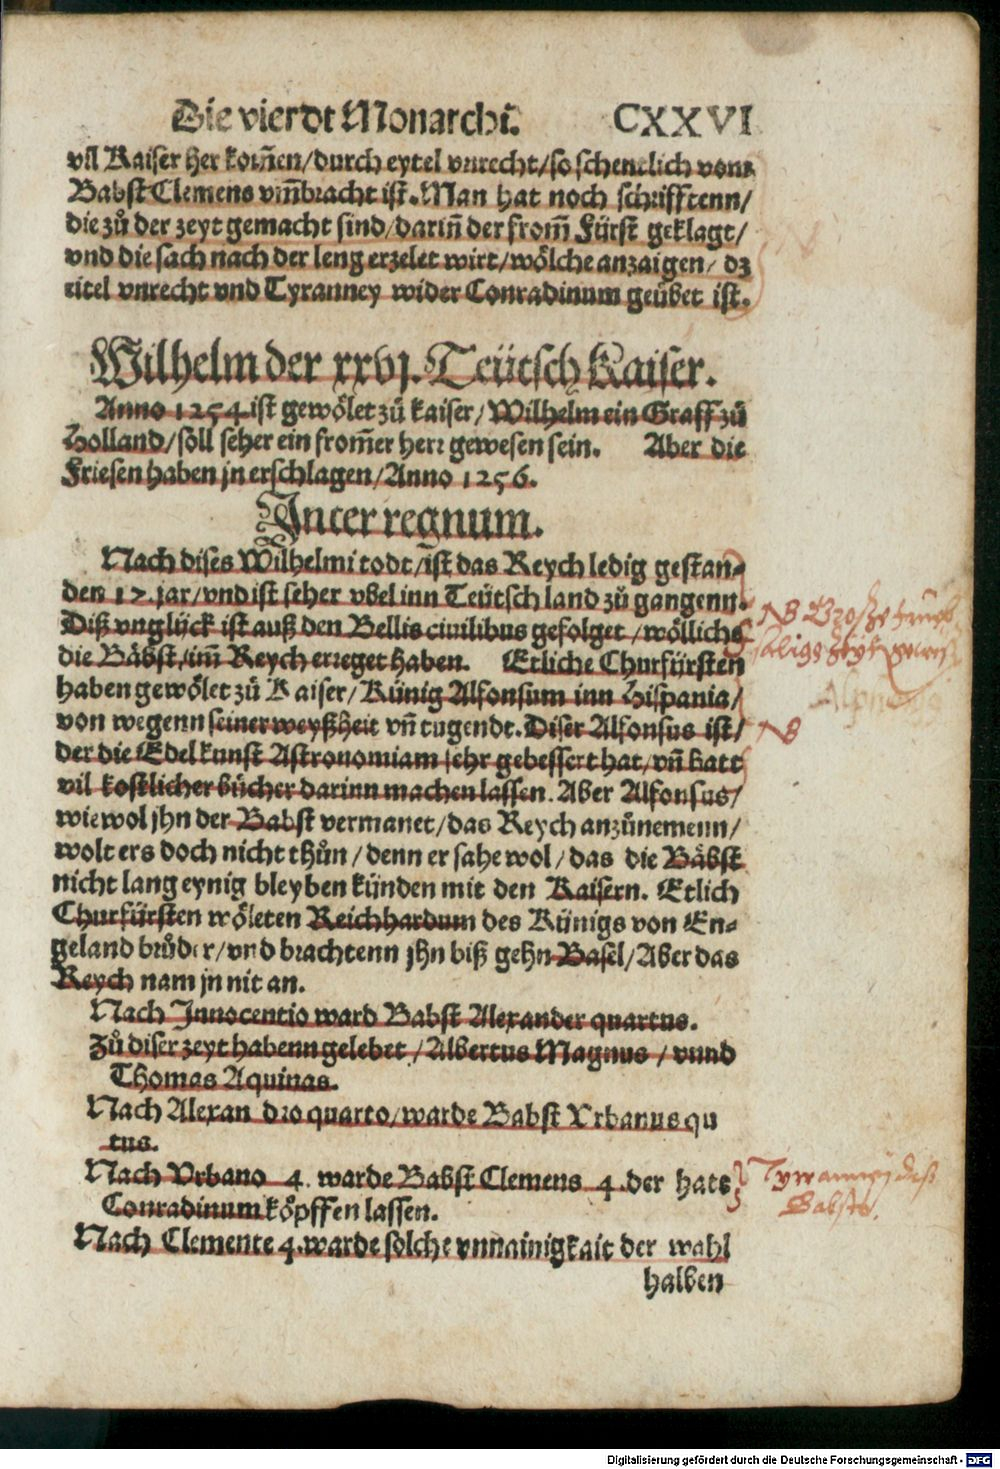 Die vierdt Monarchi. CXXVI
vil Kaiser her kom̃en/durch eytel vnrecht/so schentlich vom
Babst Clemens vm̃bracht ist. Man hat noch schrifftenn/
die zů der zeyt gemacht sind/darin̄ der from̃ Fürst geklagt/
vnd die sach nach der leng erzelet wirt/wölche anzaigen/ dz
eitel vnrecht vnd Tyranney wider Conradinum geübet ist.
Wilhelm der xxvj. Teütsch Kaiser.
Anno 1254. ist gewölet zů kaiser/Wilhelm ein Graff zů
Holland/soll seher ein from̃er herr gewesen sein. Aber die
Friesen haben jn erschlagen/Anno 1256.
Inter regnum.
Nach dises Wilhelmi todt/ist das Reych ledig gestan-
den 17. jar/vnd ist seher vbel inn Teütsch land zů gangenn.
Diß vnglück ist auß den Bellis ciuilibus gefolget/wöllichs
die Bäbst/im̃ Reych erreget haben. Etliche Churfürsten
haben gewölet zů Kaiser/Künig Alfonsum inn Hispania/
von wegenn seiner weyßheit vn̄ tugendt. Diser Alfonsus ist/
der die Edel kunst Astronomiam sehr gebessert hat/vn̄ hatt
vil kostlicher bücher darinn machen lassen. Aber Alfonsus/
wiewol jhn der Babst vermanet/das Reych anzůnemenn/
wolt ers doch nicht thůn/denn er sahe wol/das die Bäbst
nicht lang eynig bleyben künden mit den Kaisern. Etlich
Churfürsten wöleten Reichhardum des Künigs von En-
geland brůder/vnd brachtenn jhn biß gehn Basel/Aber das
Reych nam jn nit an.
Nach Innocentio ward Babst Alexander quartus.
Zů diser zeyt habenn gelebet/Albertus Magnus/vnnd
Thomas Aquinas.
Nach Alexan dro quarto/warde Babst Vrbanus qu
tus.
Nach Vrbano 4. warde Babst Clemens 4. der hats
Conradinum köpffen lassen.
Nach Clemente 4. warde solche vnnainigkait der wahl
halben
NB
NB
Tyranney deß
Babsts.
Digitalisierung gefördert durch die Deutsche Forschungsgemeinschaft - DFG